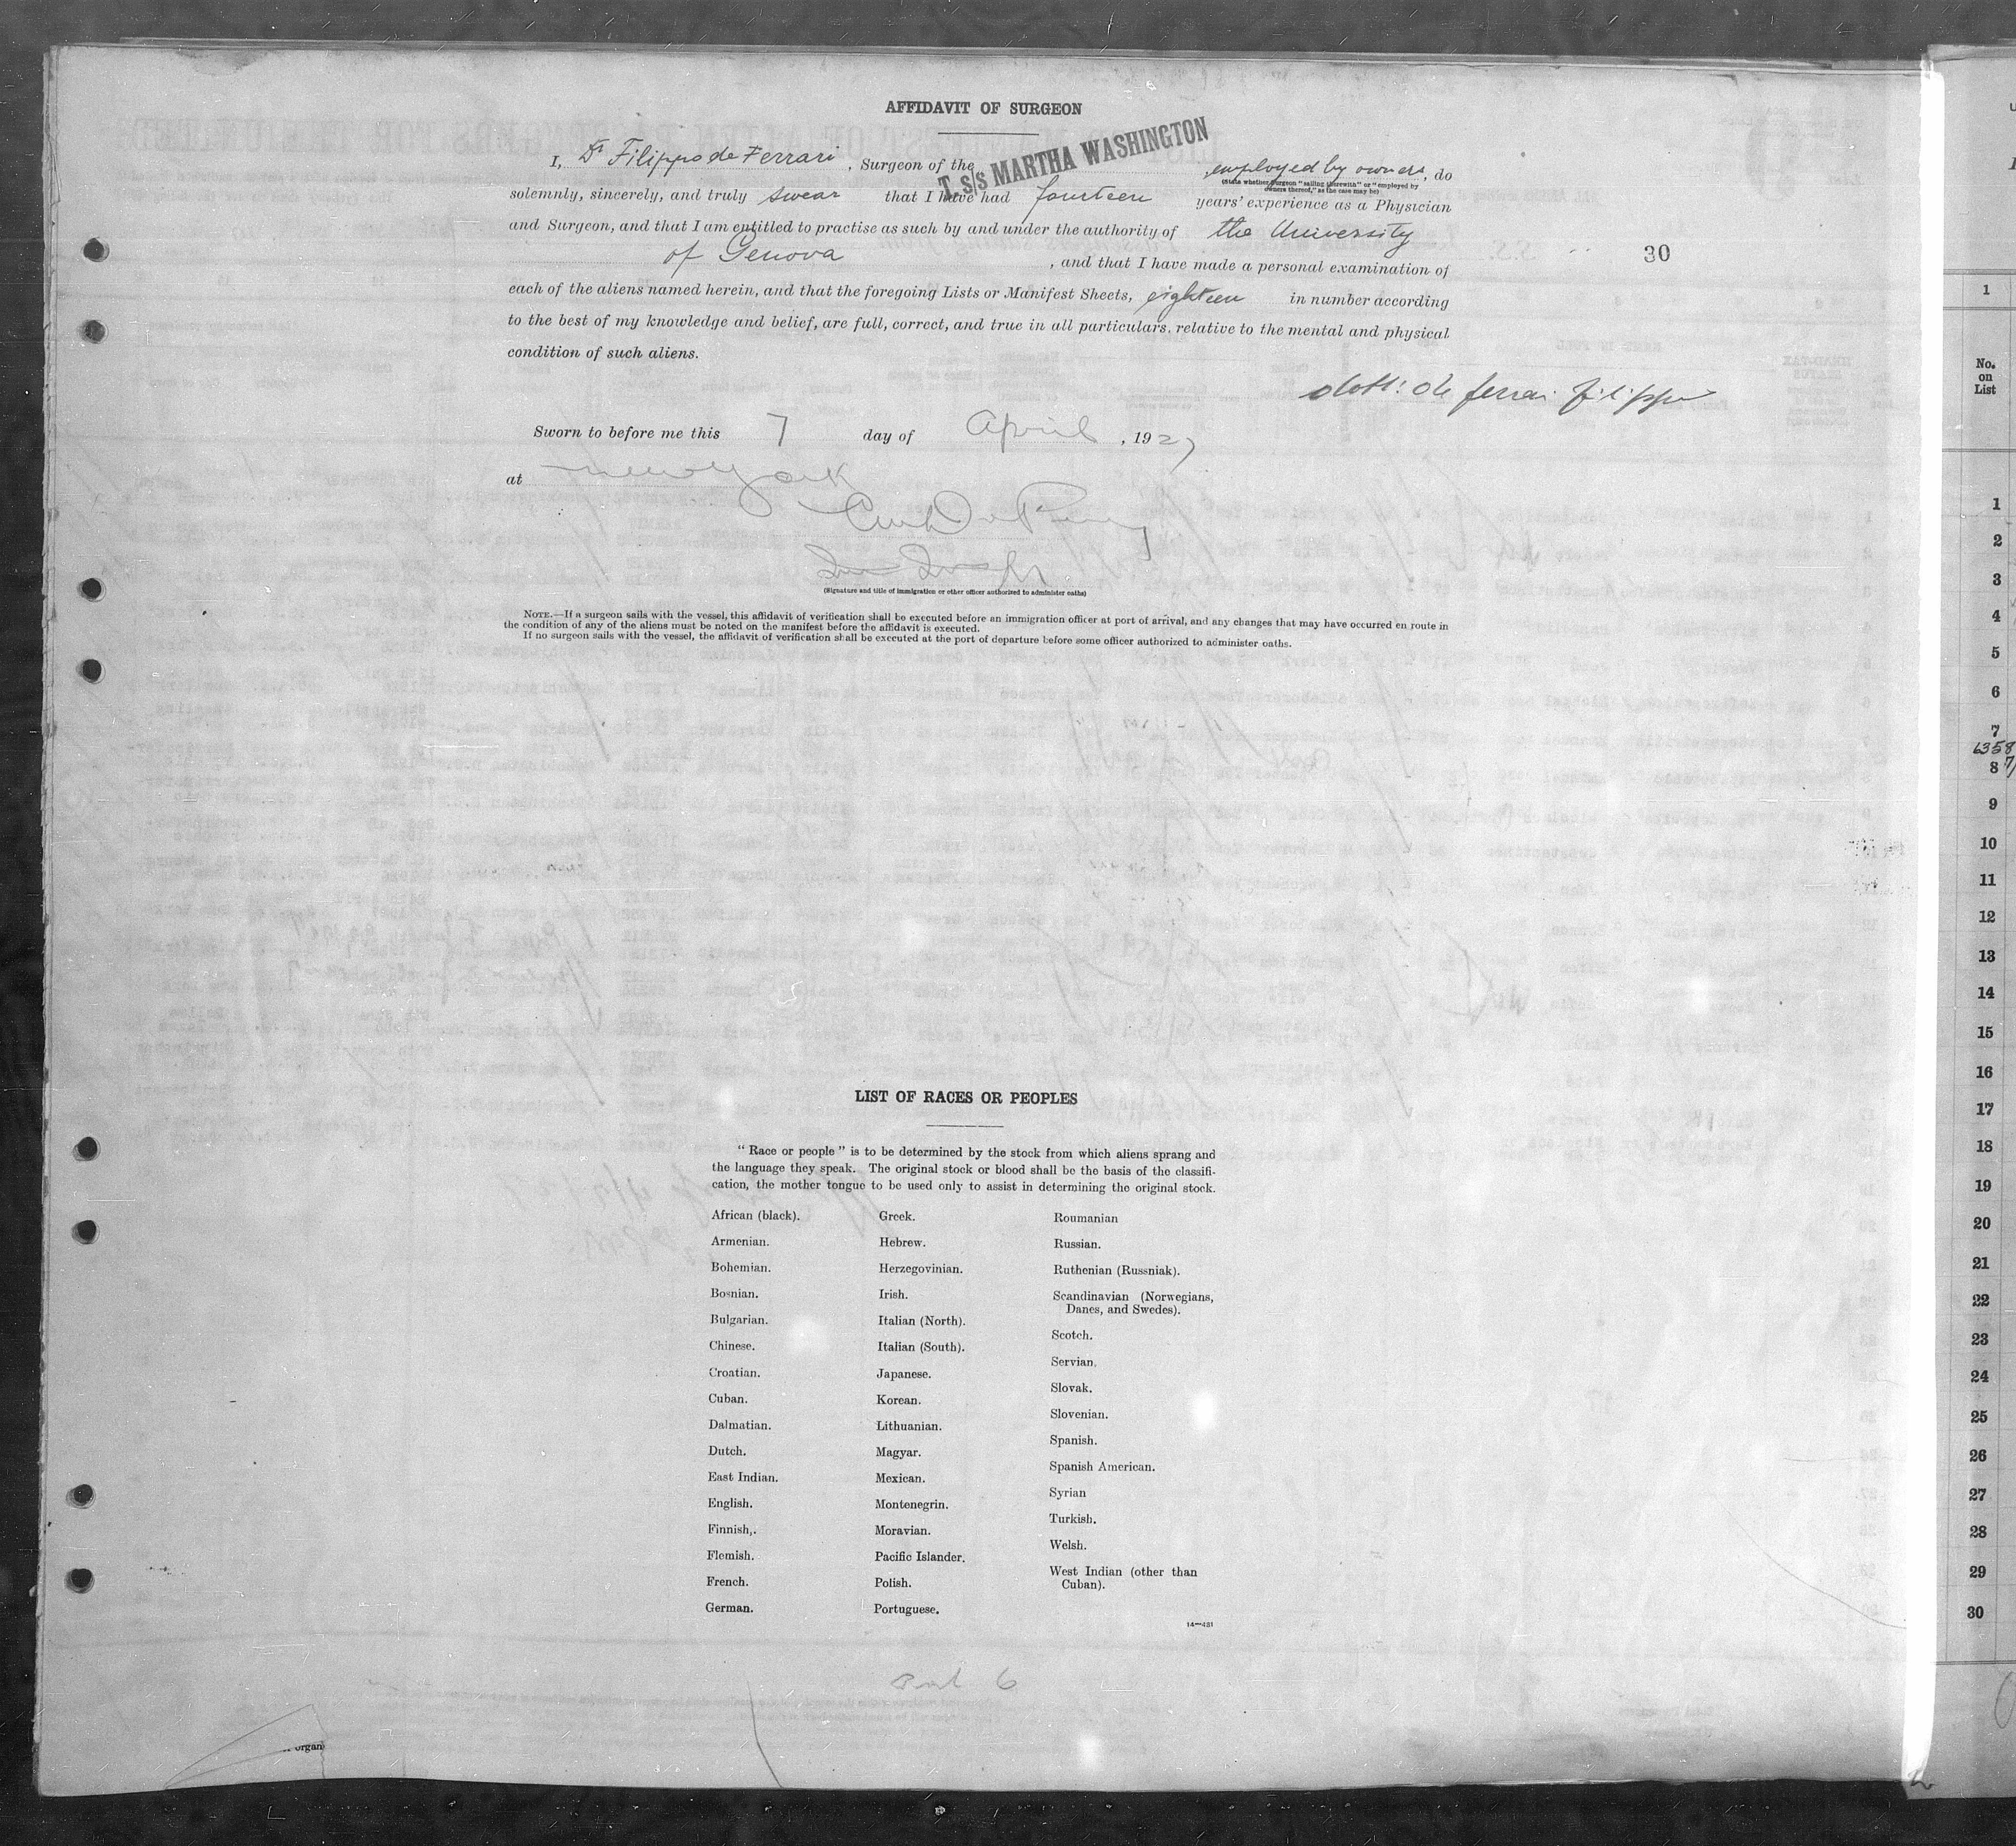 AFFIDAVIT OF SURGEON
I, Dr Filippo de Ferrari, Surgeon of the T. s/s MARTHA WASHINGTON, employed by owners, do
(State whether surgeon "sailing therewith" or "employed by owners thereof," as the case may be)
solemnly, sincerely, and truly swear that I have had fourteen years' experience as a Physician
and Surgeon, and that I am entitled to practise as such by and under the authority of the University
of Genova, and that I have made a personal examination of
30
each of the aliens named herein, and that the foregoing Lists or Manifest Sheets, eighteen in number according
to the best of my knowledge and belief, are full, correct, and true in all particulars, relative to the mental and physical
condition of such aliens.
dott: de ferrari filippo
Sworn to before me this 7 day of April, 1927
at New York
(Signature and title of immigration or other officer authorized to administer oaths)
NOTE.—If a surgeon sails with the vessel, this affidavit of verification shall be executed before an immigration officer at port of arrival, and any changes that may have occurred en route in
the condition of any of the aliens must be noted on the manifest before the affidavit is executed.
If no surgeon sails with the vessel, the affidavit of verification shall be executed at the port of departure before some officer authorized to administer oaths.
LIST OF RACES OR PEOPLES
"Race or people" is to be determined by the stock from which aliens sprang and
the language they speak. The original stock or blood shall be the basis of the classifi-
cation, the mother tongue to be used only to assist in determining the original stock.
African (black).
Armenian.
Bohemian.
Bosnian.
Bulgarian.
Chinese.
Croatian.
Cuban.
Dalmatian.
Dutch.
East Indian.
English.
Finnish,.
Flemish.
French.
German.
Greek.
Hebrew.
Herzegovinian.
Irish.
Italian (North).
Italian (South).
Japanese.
Korean.
Lithuanian.
Magyar.
Mexican.
Montenegrin.
Moravian.
Pacific Islander.
Polish.
Portuguese.
Roumanian
Russian.
Ruthenian (Russniak).
Scandinavian (Norwegians,
Danes, and Swedes).
Scotch.
Servian.
Slovak.
Slovenian.
Spanish.
Spanish American.
Syrian
Turkish.
Welsh.
West Indian (other than
Cuban).
14—481
organ
1
No.
on
List
1
2
3
4
5
6
7
6358
8
9
10
11
12
13
14
15
16
17
18
19
20
21
22
23
24
25
26
27
28
29
30